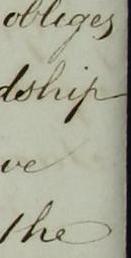 obliges
dship
ve
the